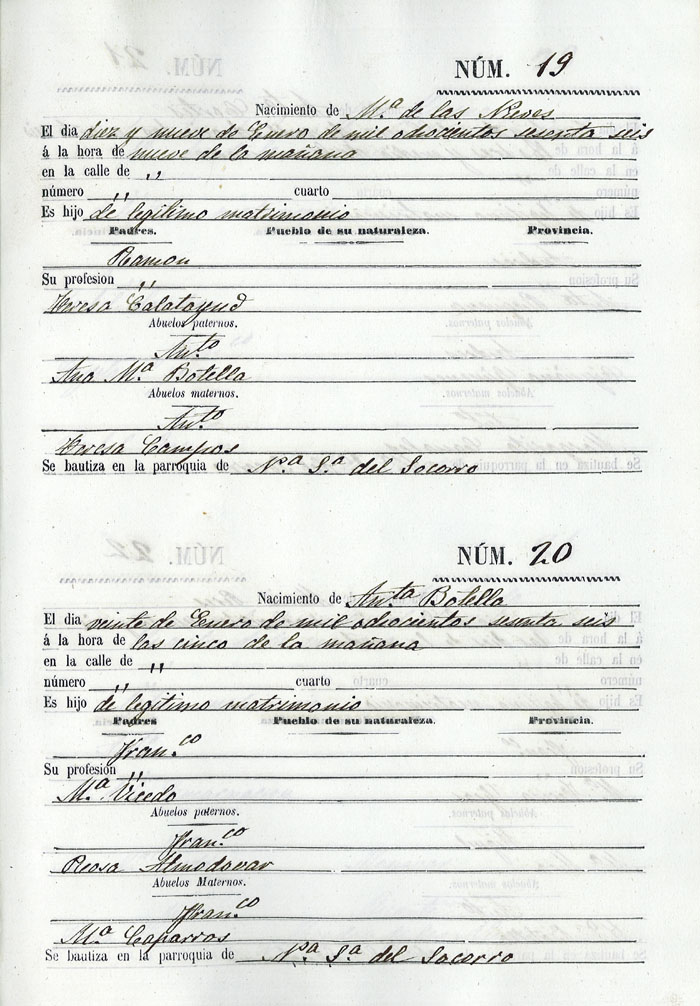 NÚM. 19
Nacimiento de Mª de las Nieves
El dia diez y nueve de Enero de mil ochocientos sesenta seis
á la hora de nueve de la mañana
en la calle de ,,
número ,, cuarto
Es hijo de legitimo matrimonio
Padres. Pueblo de su naturaleza. Provincia.
Ramon
Su profesion ,,
Teresa Calatayud
Abuelos paternos.
Anto
Ana Mª Botella
Abuelos maternos.
Anto
Teresa Campos
Se bautiza en la parroquia de Nª Sª del Socorro
NÚM. 20
Nacimiento de Anta Botella
El dia veinte de Enero de mil ochocientos sesenta seis
á la hora de las cinco de la mañana
en la calle de ,,
número ,, cuarto
Es hijo de legitimo matrimonio
Padres Pueblo de su naturaleza. Provincia.
Fran.co
Su profesion ,,
Mª Vicedo
Abuelos paternos.
Fran.co
Rosa Almodovar
Abuelos Maternos.
Fran.co
Mª Caparros
Se bautiza en la parroquia de Nª Sª del Socorro